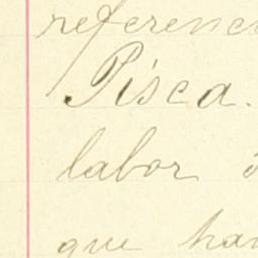 referenc
Pisca.
labor
que han